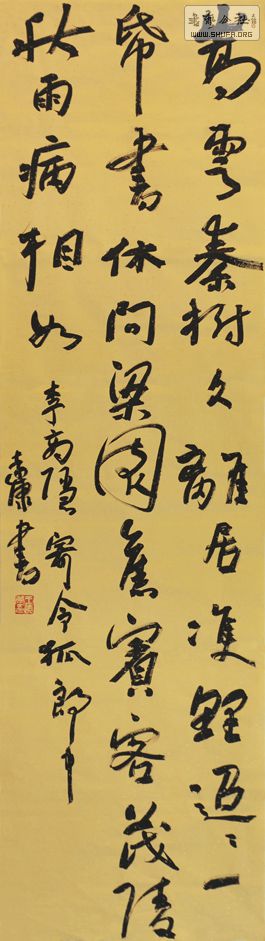 嵩雲秦樹久離居雙鯉迢〻一
帋書休问梁園舊賓客茂陵
秋雨病相如 李商隱寄令狐郎中
康書
WWW.SHUFA.ORG